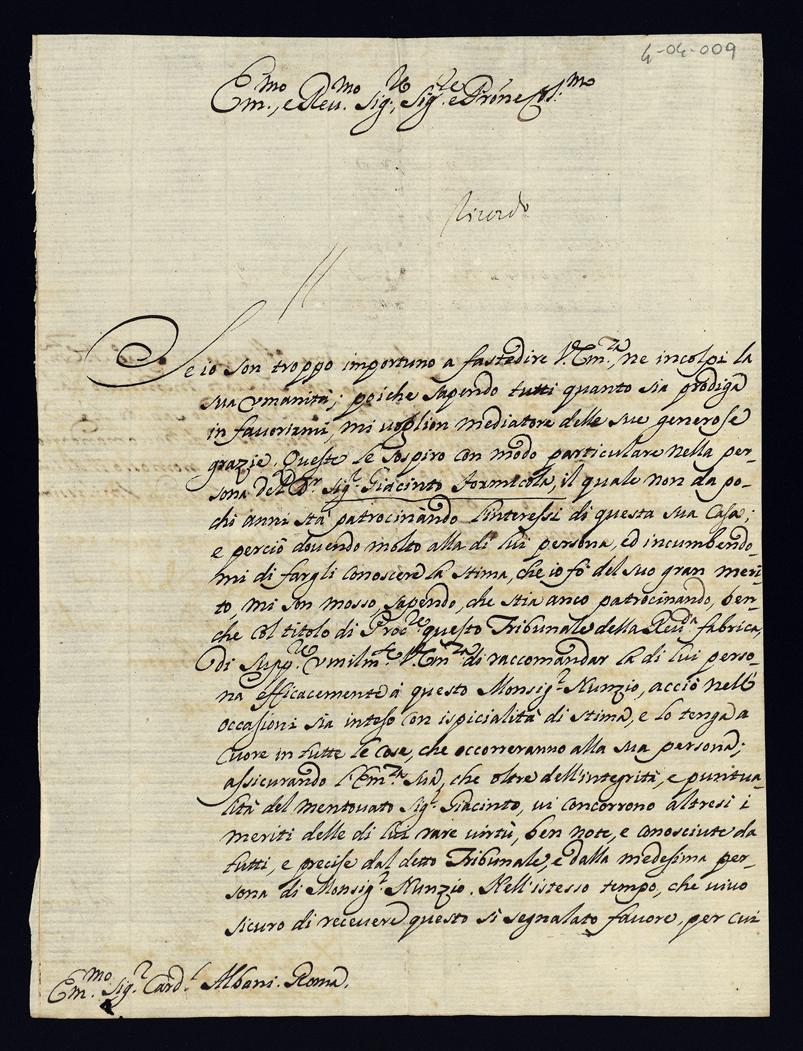 4-04-009
Em.mo, e Reu.mo Sig.r, Sig.re e Prône Col.mo
Ricordo
Se io son troppo importuno a fastedire V. Em.za, ne incolpi la
sua vmanità; poiche sapendo tutti quanto sia prodiga
in favorirmi, mi voglion mediatore delle sue generose
grazie. Queste le sospiro con modo particulare nella per-
sona del D.r Sig.r Giacinto Formicola, il quale non da po-
chi anni stà patrocinando l'interessi di questa sua Casa;
e perciò dovendo molto alla di lui persona, ed incumbendo-
mi di fargli conoscere la stima, che io fò del suo gran meri-
to, mi son mosso, sapendo, che stia anco patrocinando, ben-
che col titolo di Proc.re questo Tribunale della Reu.da fabrica,
di supp.re vmilm.te V. Em.za di raccomandar la di lui perso-
na efficacemente à questo Monsig.r Nunzio, acciò nell'
occasioni sia inteso con ispicialità di stima, e lo tenga a
cuore in tutte le cose, che occorreranno alla sua persona;
assicurando l'Em.za Sua, che oltre dell'integrità, e puntua-
lità del mentovato Sig.r Giacinto, vi concorrono altresi i
meriti delle di lui rare virtù, ben note, e conosciute da
tutti, e precise dal detto Tribunale, e dalla medesima per-
sona di Monsig.r Nunzio. Nell'istesso tempo, che vivo
sicuro di recevere questo sì segnalato favore, per cui
Em.mo Sig.r Card.l Albani. Roma.